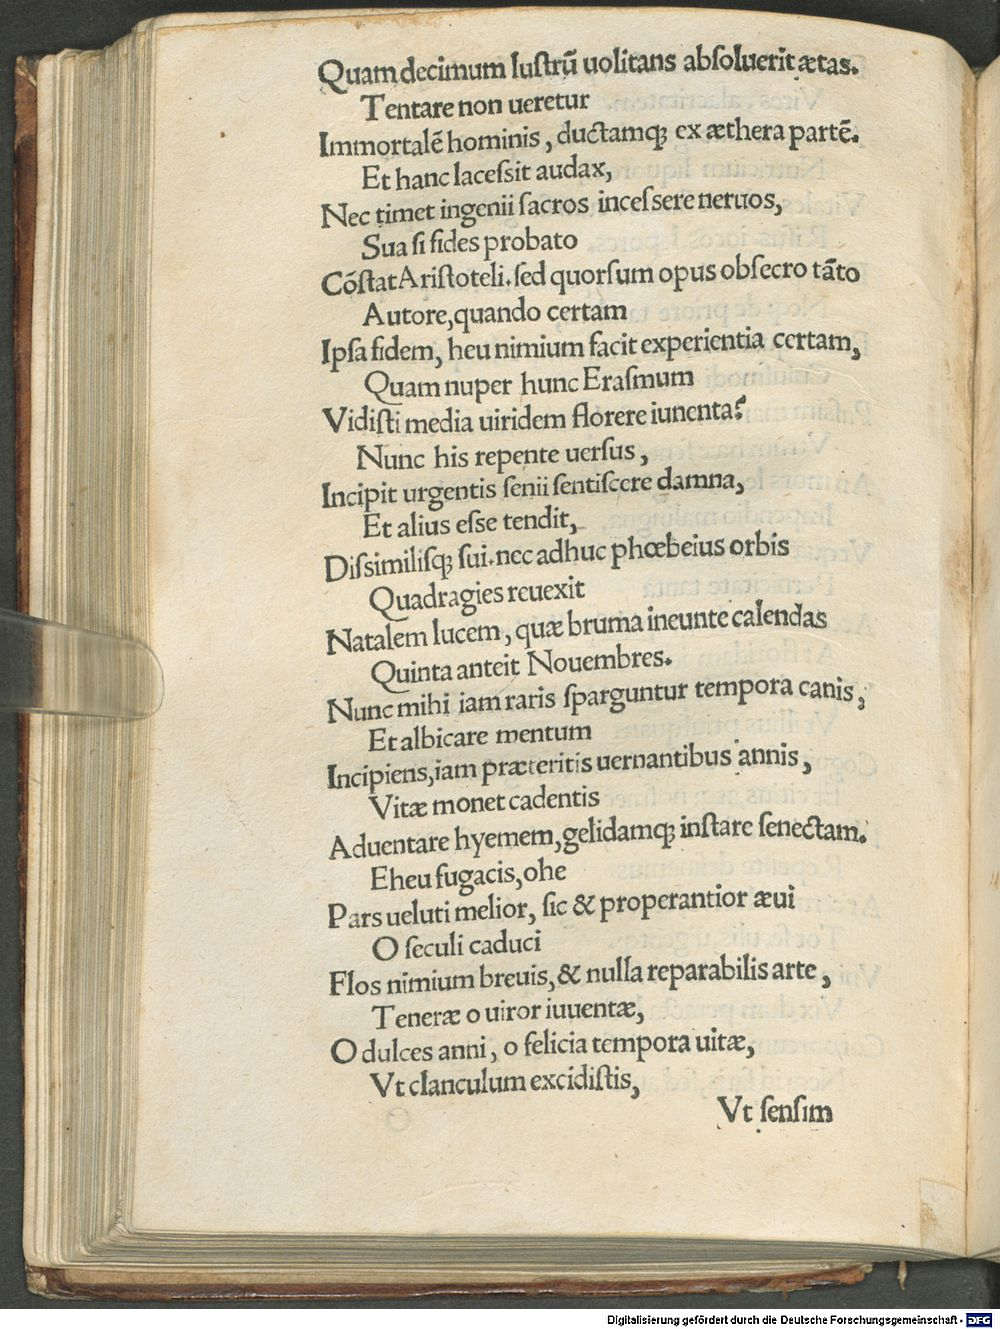 Quam decimum luſtrũ uolitans abſoluerit ætas.
Tentare non ueretur
Immortalẽ hominis, ductamq; ex æthera partẽ.
Et hanc laceſsit audax,
Nec timet ingenii ſacros inceſſere neruos,
Sua ſi fides probato
Cõſtat Ariſtoteli. ſed quorſum opus obſecro tãto
Autore, quando certam
Ipſa fidem, heu nimium facit experientia certam,
Quam nuper hunc Eraſmum
Vidiſti media uiridem florere iuuenta?
Nunc his repente uerſus,
Incipit urgentis ſenii ſentiſcere damna,
Et alius eſse tendit,
Diſsimiliſq; ſui. nec adhuc phœbeius orbis
Quadragies reuexit
Natalem lucem, quæ bruma ineunte calendas
Quinta anteit Nouembres.
Nunc mihi iam raris ſparguntur tempora canis,
Et albicare mentum
Incipiens, iam præteritis uernantibus annis,
Vitæ monet cadentis
Aduentare hyemem, gelidamq; inſtare ſenectam.
Eheu fugacis, ohe
Pars ueluti melior, ſic & properantior æui
O ſeculi caduci
Flos nimium breuis, & nulla reparabilis arte,
Teneræ o uiror iuuentæ,
O dulces anni, o felicia tempora uitæ,
Vt clanculum excidiſtis,
Vt ſenſim
Digitalisierung gefördert durch die Deutsche Forschungsgemeinschaft - DFG